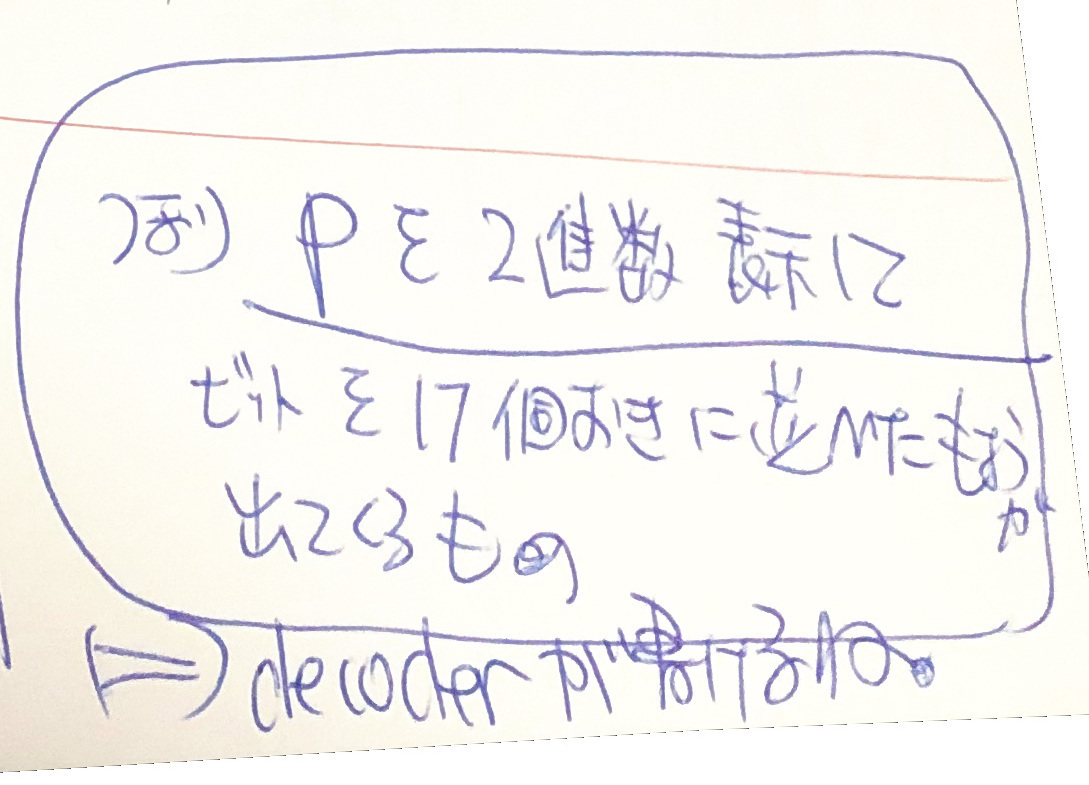 例) pを2値数表示に
ビットを17個おきに並べたものが
出てくるもの
⇒ decoderが書けるの。